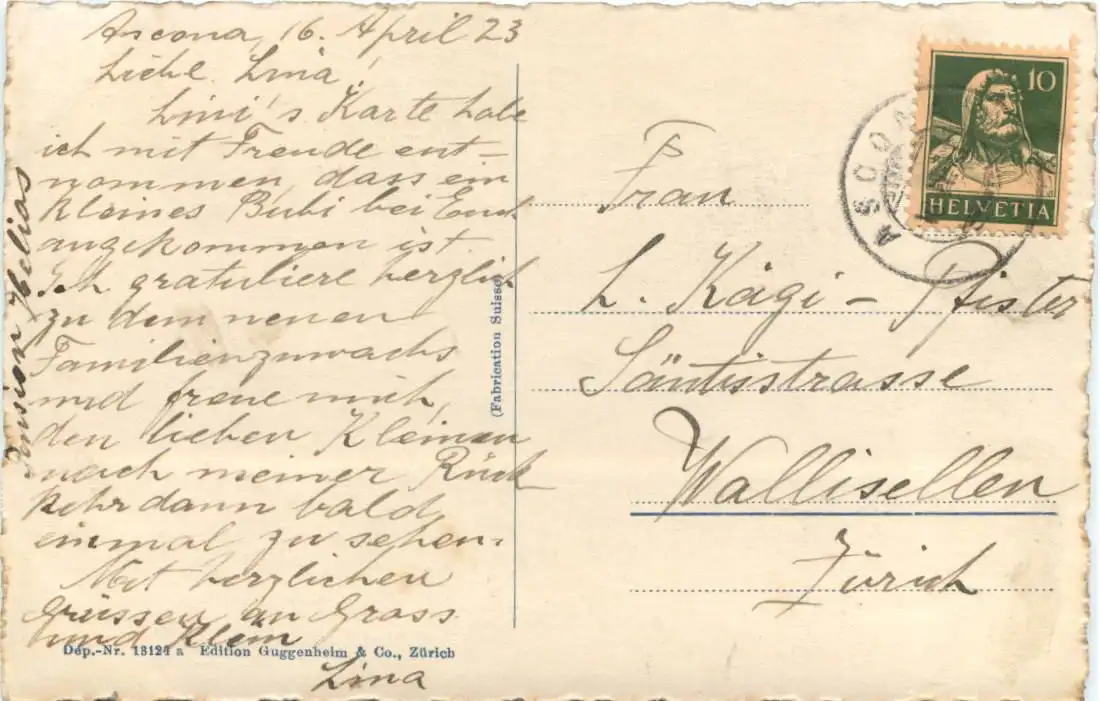 Ascona, 16. April 23
Liebe Lina!
Lini's Karte habe
ich mit Freude ent-
nommen, dass ein
kleines Bubi bei Euch
angekommen ist.
Ich gratuliere herzlich
zu dem neuen
Familienzuwachs
und freue mich,
den lieben Kleinen
nach meiner Rück
kehr dann bald
einmal zu sehen.
Mit herzlichen
Grüssen an Gross
und Klein
Lina
Pension Helios
Dép.-Nr. 13124 a Edition Guggenheim & Co., Zürich
(Fabrication Suisse)
10
HELVETIA
ASCONA
Frau
L. Kägi - Pfister
Säntisstrasse
Wallisellen
Zürich